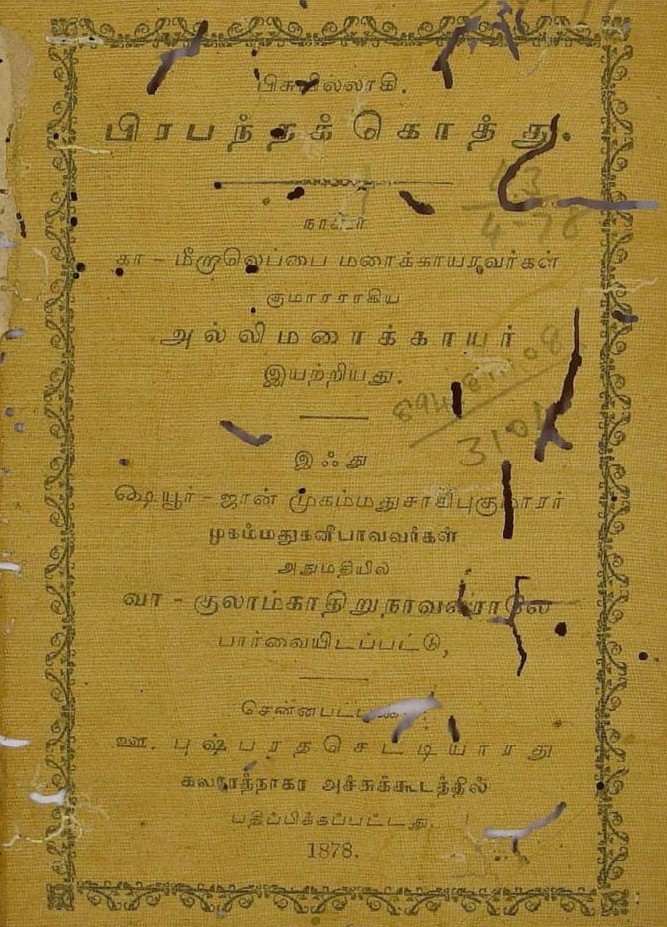 பிசுமில்லாகி.
பிரபந்தக்கொத்து.
நாகூர்
கா - மீறாலெப்பை மரைக்காயரவர்கள்
குமாரராகிய
அல்லிமரைக்காயர்
இயற்றியது.
இஃது
ஷையூர் - ஜான் முகம்மதுசாகிபுகுமாரர்
முகம்மதுகனீபாவவர்கள்
அநுமதியில்
வா - குலாம்காதிறுநாவலராலே
பார்வையிடப்பட்டு,
சென்னபட்டணம்:
ஊ. புஷ்பரதசெட்டியாரது
கலாரத்நாகர அச்சுக்கூடத்தில்
பதிப்பிக்கப்பட்டது.
1878.
13
4-78
894.811108
3101